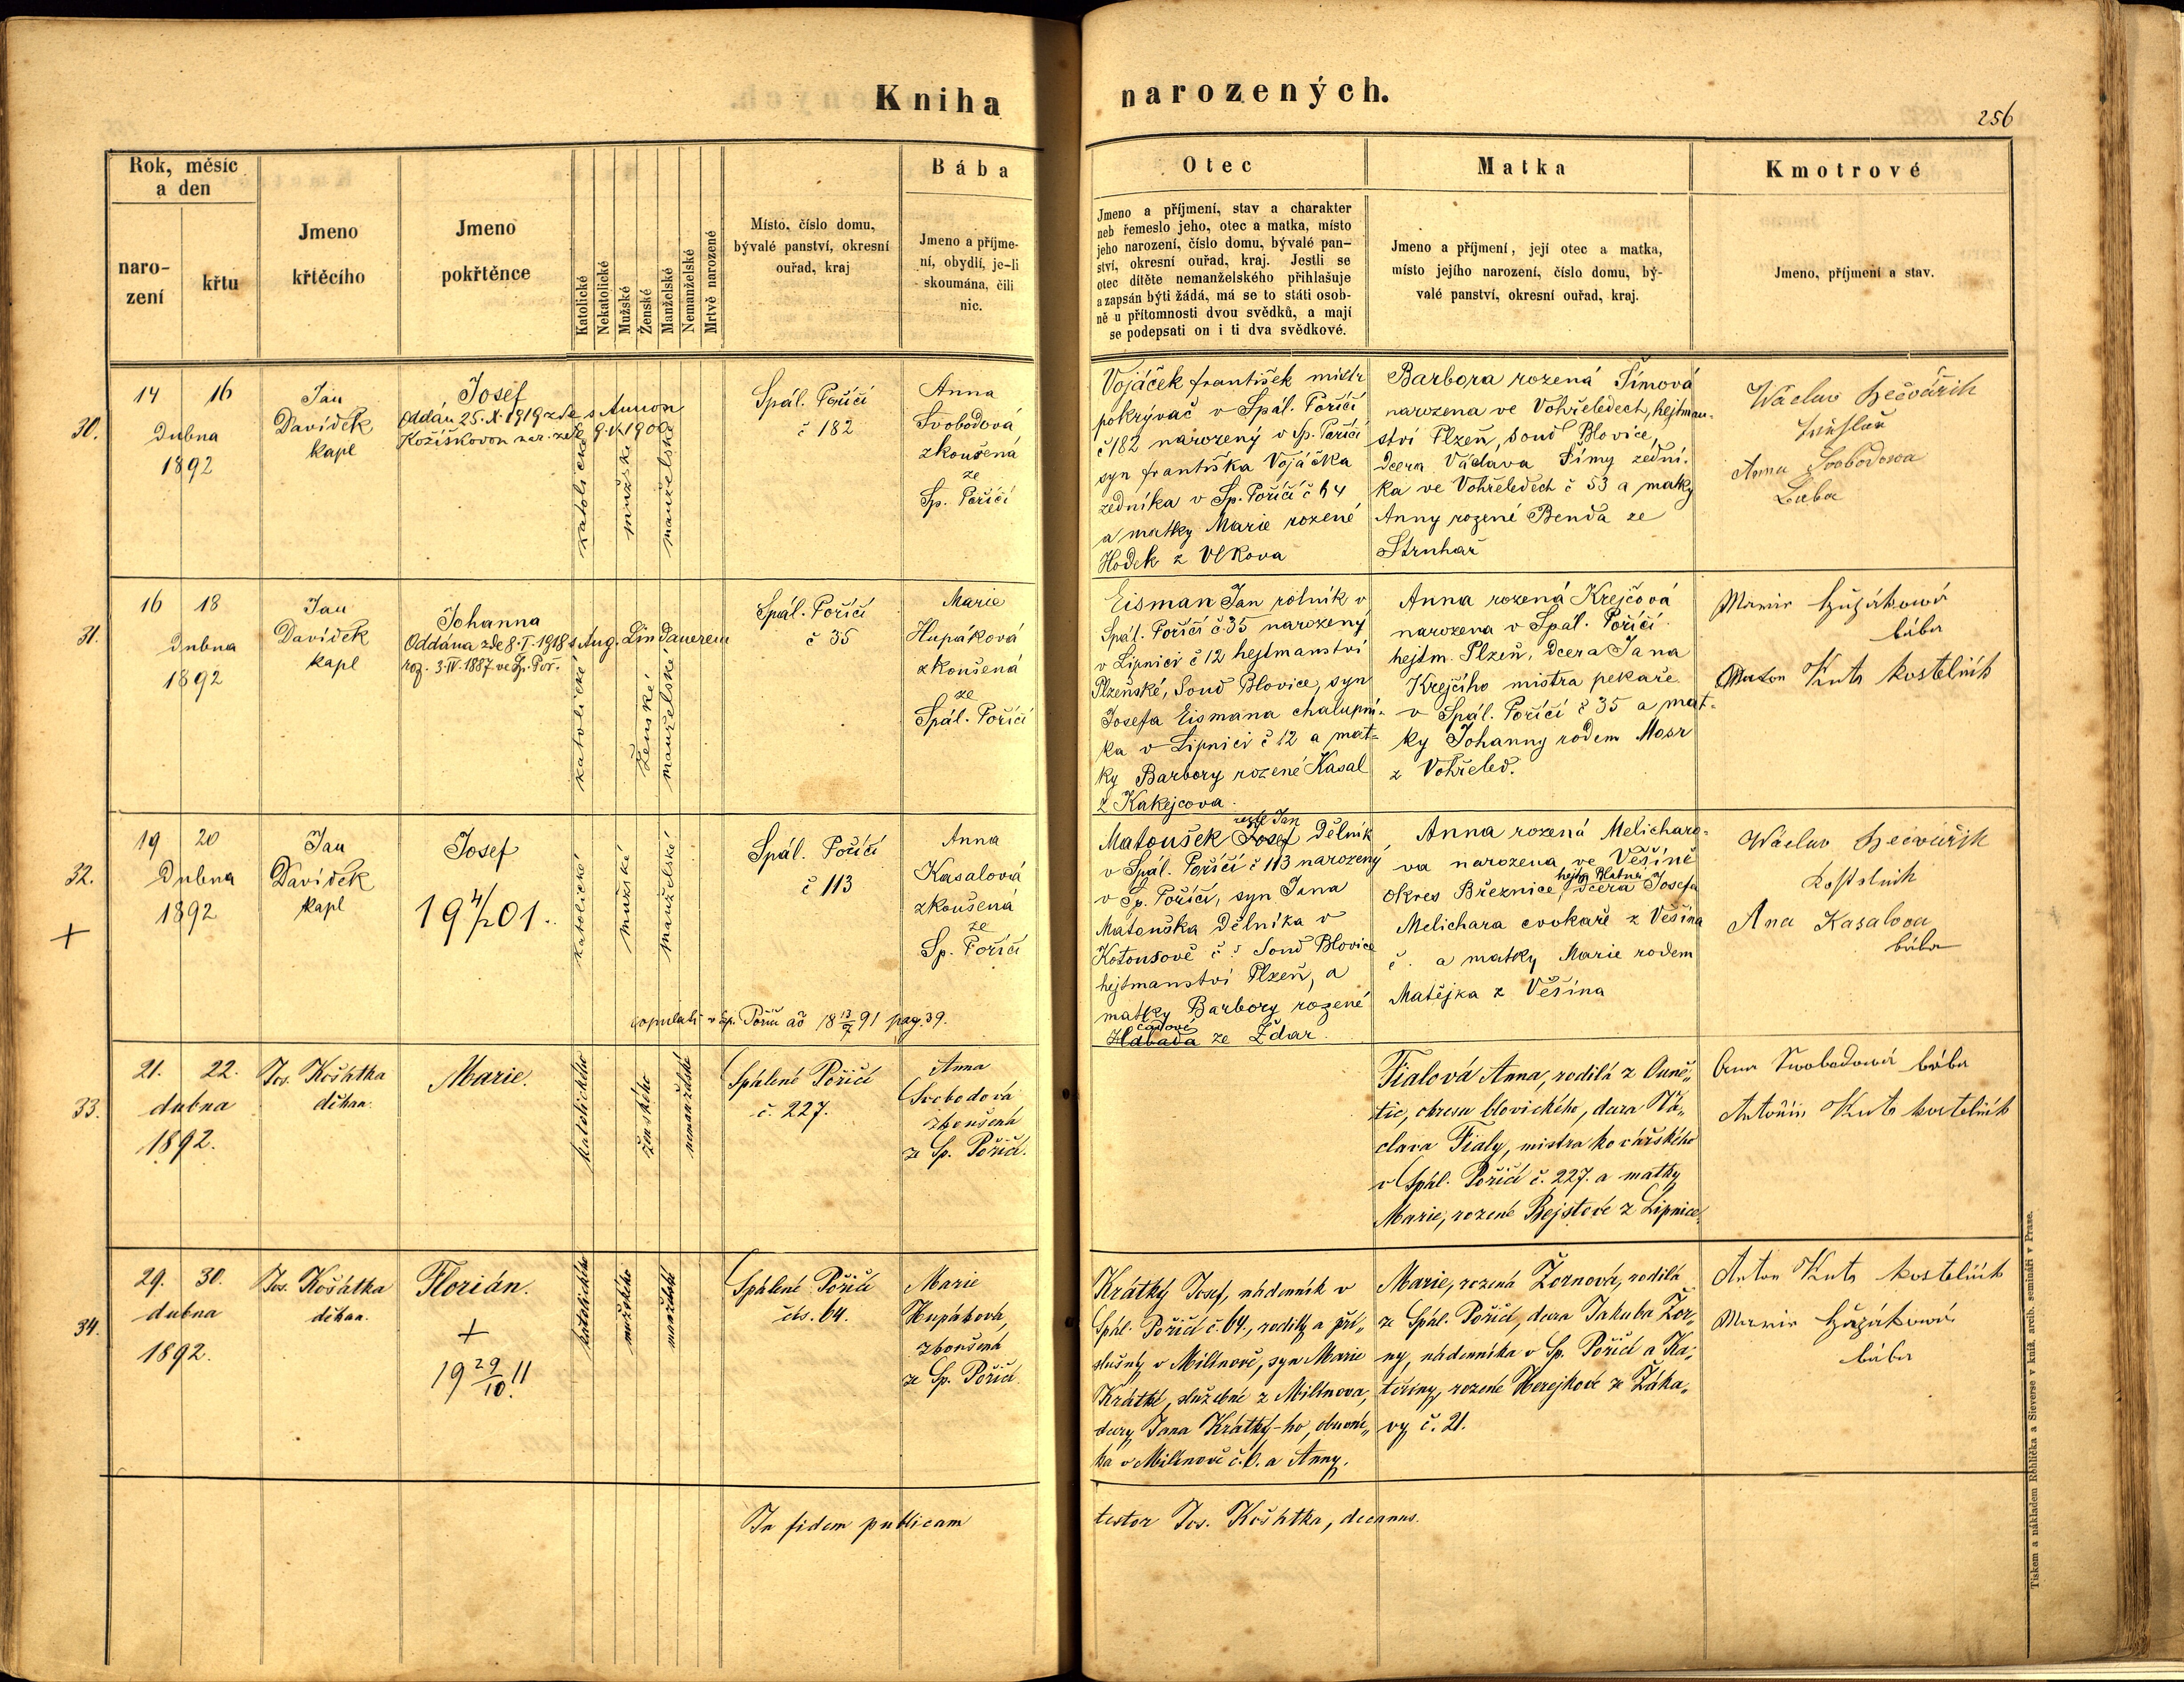 Kniha narozených.
256
Rok, měsíc
a den
naro-
zení
křtu
Jmeno
křtěcího
Jmeno
pokřtěnce
Katolické
Nekatolické
Mužské
Ženské
Manželské
Nemanželské
Mrtvě narozené
Místo, číslo domu,
bývalé panství, okresní
ouřad, kraj
Bába
Jmeno a příjme-
ní, obydlí, je-li
skoumána, čili
nic.
Otec
Jmeno a příjmení, stav a charakter
neb řemeslo jeho, otec a matka, místo
jeho narození, číslo domu, bývalé pan-
ství, okresní ouřad, kraj. Jestli se
otec dítěte nemanželského přihlašuje
a zapsán býti žádá, má se to státi osob-
ně u přítomnosti dvou svědků, a mají
se podepsati on i ti dva svědkové.
Matka
Jmeno a příjmení, její otec a matka,
místo jejího narození, číslo domu, bý-
valé panství, okresní ouřad, kraj.
Kmotrové
Jmeno, příjmení a stav.
30.
14 16
Dubna
1892
Jan
Davídek
kapl
Josef
Oddán 25.X.1919 zde s Annou
Kožíškovou nar. zde 9.V.1900
katolické
mužské
manželské
Spál. Poříčí
č 182
Anna
Svobodová
zkoušená
ze
Sp. Poříčí
Vojáček František mistr
pokrývač v Spál. Poříčí
č 182 narozený v Sp. Poříčí
syn Františka Vojáčka
zedníka v Sp. Poříčí č 64
a matky Marie rozené
Hodek z Vlkova
Barbora rozená Šímová
narozena ve Vohřeledech, hejtman-
ství Plzeň, soud Blovice,
dcera Václava Šímy zední-
ka ve Vohřeledech č 53 a matky
Anny rozené Benda ze
Struhař
Wáclav
Anna Svobodowa
31.
16 18
Dubna
1892
Jan
Davídek
kapl
Johanna
Oddána zde 8.I.1918 s Aug. Lindauerem
roz. 3.IV.1887 ve Sp. Poř.
katolické
ženské
manželské
Spál. Poříčí
č 35
Marie
Hupáková
zkoušená
ze
Spál. Poříčí
Eisman Jan rolník v
Spál. Poříčí č 35 narozený
v Lipnici č 12 hejtmanství
Plzeňské, soud Blovice, syn
Josefa Eismana chalupní-
ka v Lipnici č 12 a mat-
ky Barbory rozené Kasal
z Kakejcova.
Anna rozená Krejčová
narozena v Spál. Poříčí
hejtm. Plzeň, dcera Jana
Krejčího mistra pekaře
v Spál. Poříčí č 35 a mat-
ky Johanny rodem Mosr
z Vohřeled.
Marie Hupáková
bába
Anton Kuts kostelník
32.
+
19 20
Dubna
1892
Jan
Davídek
kapl
Josef
19 4/2 01.
katolické
mužské
manželské
Spál. Poříčí
č 113
Anna
Kasalová
zkoušená
ze
Sp. Poříčí
copulati v Sp. Poříčí ao 18 13/7 91 pag. 39.
recte Jan
Matoušek Josef dělník
v Spál. Poříčí č 113 narozený
v Sp. Poříčí, syn Jana
Matouška dělníka v
Kotousově č : soud Blovice
hejtmanství Plzeň, a
matky Barbory rozené
čadové
Habada ze Ždar.
Anna rozená Melicharo-
va narozena ve Věšíně
hejtm Blatná
okres Březnice, dcera Josefa
Melichara cvokaře z Věšína
č. a matky Marie rodem
Matějka z Věšína
Wáclav
Kostelník
Ana Kasalova
bába
33.
21. 22.
dubna
1892.
Jos. Košátka
děkan.
Marie.
katolického
ženského
nemanželské
Spálené Poříčí
č. 227.
Anna
Svobodová
zkoušená
ze Sp. Poříčí.
Fialová Anna, rodilá z Ouně-
tic, okresu blovického, dcera Vá-
clava Fialy, mistra kovářského
v Spál. Poříčí č. 227. a matky
Marie, rozené Bejstové z Lipnice.
Anna Swobodowá bába
Antonín Kuts kostelník
34.
29. 30.
dubna
1892.
Jos. Košátka
děkan.
Florián.
+
19 29/10 11
katolického
mužského
manželské
Spálené Poříčí
čís. 64.
Marie
Hupáková,
zkoušená
ze Sp. Poříčí.
Krátký Josef, nádenník v
Spál. Poříčí č. 64., rodilý a pří-
slušný v Milínově, syn Marie
Krátké, služebné z Milínova,
dcery Jana Krátký-ho, obecní-
ka v Milínově č. 6. a Anny.
Marie, rozená Žornová, rodilá
ze Spál. Poříčí, dcera Jakuba Žor-
ny, nádenníka v Sp. Poříčí a Ka-
teřiny, rozené Herejkové ze Žáka-
vy č. 21.
Anton Kuts kostelník
Marie Hupáková
bába
In fidem publicam testor Jos. Košátka, decanus.
Tiskem a nákladem Rohlíčka a Sieverse v kníž. arcib. semináři v Praze.